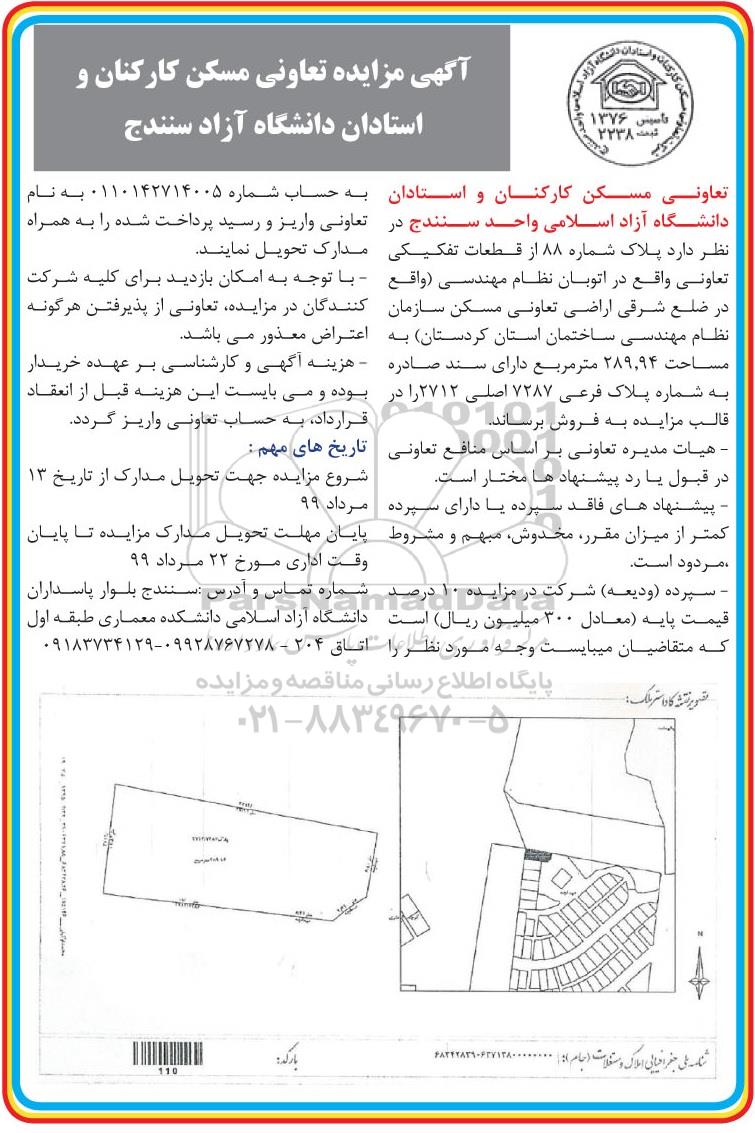 آگهی مزایده تعاونی مسکن کارکنان و
استادان دانشگاه آزاد سنندج
شرکت تعاونی مسکن کارکنان و استادان دانشگاه آزاد اسلامی واحد سنندج
تاسیس ۱۳۷۶
ثبت ۲۲۳۸
تعاونی مسکن کارکنان و استادان
دانشگاه آزاد اسلامی واحد سنندج در
نظر دارد پلاک شماره ۸۸ از قطعات تفکیکی
تعاونی واقع در اتوبان نظام مهندسی (واقع
در ضلع شرقی اراضی تعاونی مسکن سازمان
نظام مهندسی ساختمان استان کردستان) به
مساحت ۲۸۹,۹۴ مترمربع دارای سند صادره
به شماره پلاک فرعی ۷۲۸۷ اصلی ۲۷۱۲را در
قالب مزایده به فروش برساند.
- هیات مدیره تعاونی بر اساس منافع تعاونی
در قبول یا رد پیشنهاد ها مختار است.
- پیشنهاد های فاقد سپرده یا دارای سپرده
کمتر از میزان مقرر، مخدوش، مبهم و مشروط
،مردود است.
- سپرده (ودیعه) شرکت در مزایده ۱۰ درصد
قیمت پایه (معادل ۳۰۰ میلیون ریال) است
که متقاضیان میبایست وجه مورد نظر را
به حساب شماره ۰۱۱۰۱۴۲۷۱۴۰۰۵ به نام
تعاونی واریز و رسید پرداخت شده را به همراه
مدارک تحویل نمایند.
- با توجه به امکان بازدید برای کلیه شرکت
کنندگان در مزایده، تعاونی از پذیرفتن هرگونه
اعتراض معذور می باشد.
- هزینه آگهی و کارشناسی بر عهده خریدار
بوده و می بایست این هزینه قبل از انعقاد
قرارداد، به حساب تعاونی واریز گردد.
تاریخ های مهم :
شروع مزایده جهت تحویل مدارک از تاریخ ۱۳
مرداد ۹۹
پایان مهلت تحویل مدارک مزایده تا پایان
وقت اداری مورخ ۲۲ مرداد ۹۹
شماره تماس و آدرس :سنندج بلوار پاسداران
دانشگاه آزاد اسلامی دانشکده معماری طبقه اول
اتاق ۲۰۴ - ۰۹۹۲۸۷۶۷۲۷۸-۰۹۱۸۳۷۳۴۱۲۹
ParsNamadData
پایگاه اطلاع رسانی مناقصه و مزایده
۰۲۱-۸۸۳۴۹۶۷۰-۵
تصویر نقشه کاداستر ملک:
N
شناسه ملی جغرافیایی املاک و مستغلات (جام):
بارکد:
110